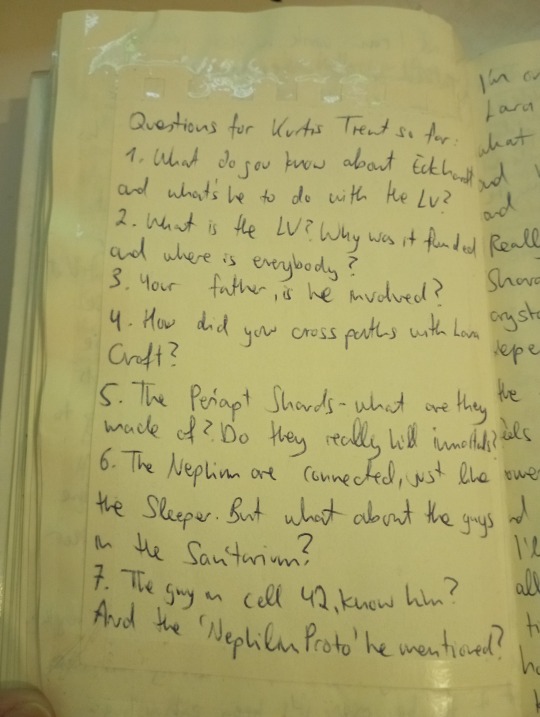 Questions for Kurtis Trent so far:
1. What do you know about Eckhardt
and what's he to do with the LV?
2. What is the LV? Why was it funded
and where is everybody?
3. Your father, is he involved?
4. How did you cross paths with Lara
Croft?
5. The Periapt Shards - what are they
made of? Do they really kill immortals?
6. The Nephilim are connected, just like
the Sleeper. But what about the guys
in the Sanitarium?
7. The guy in cell 42, know him?
And the 'Nephilim Proto' he mentioned?
I'm
Lara
what
and
and
Really
Shard
the
all